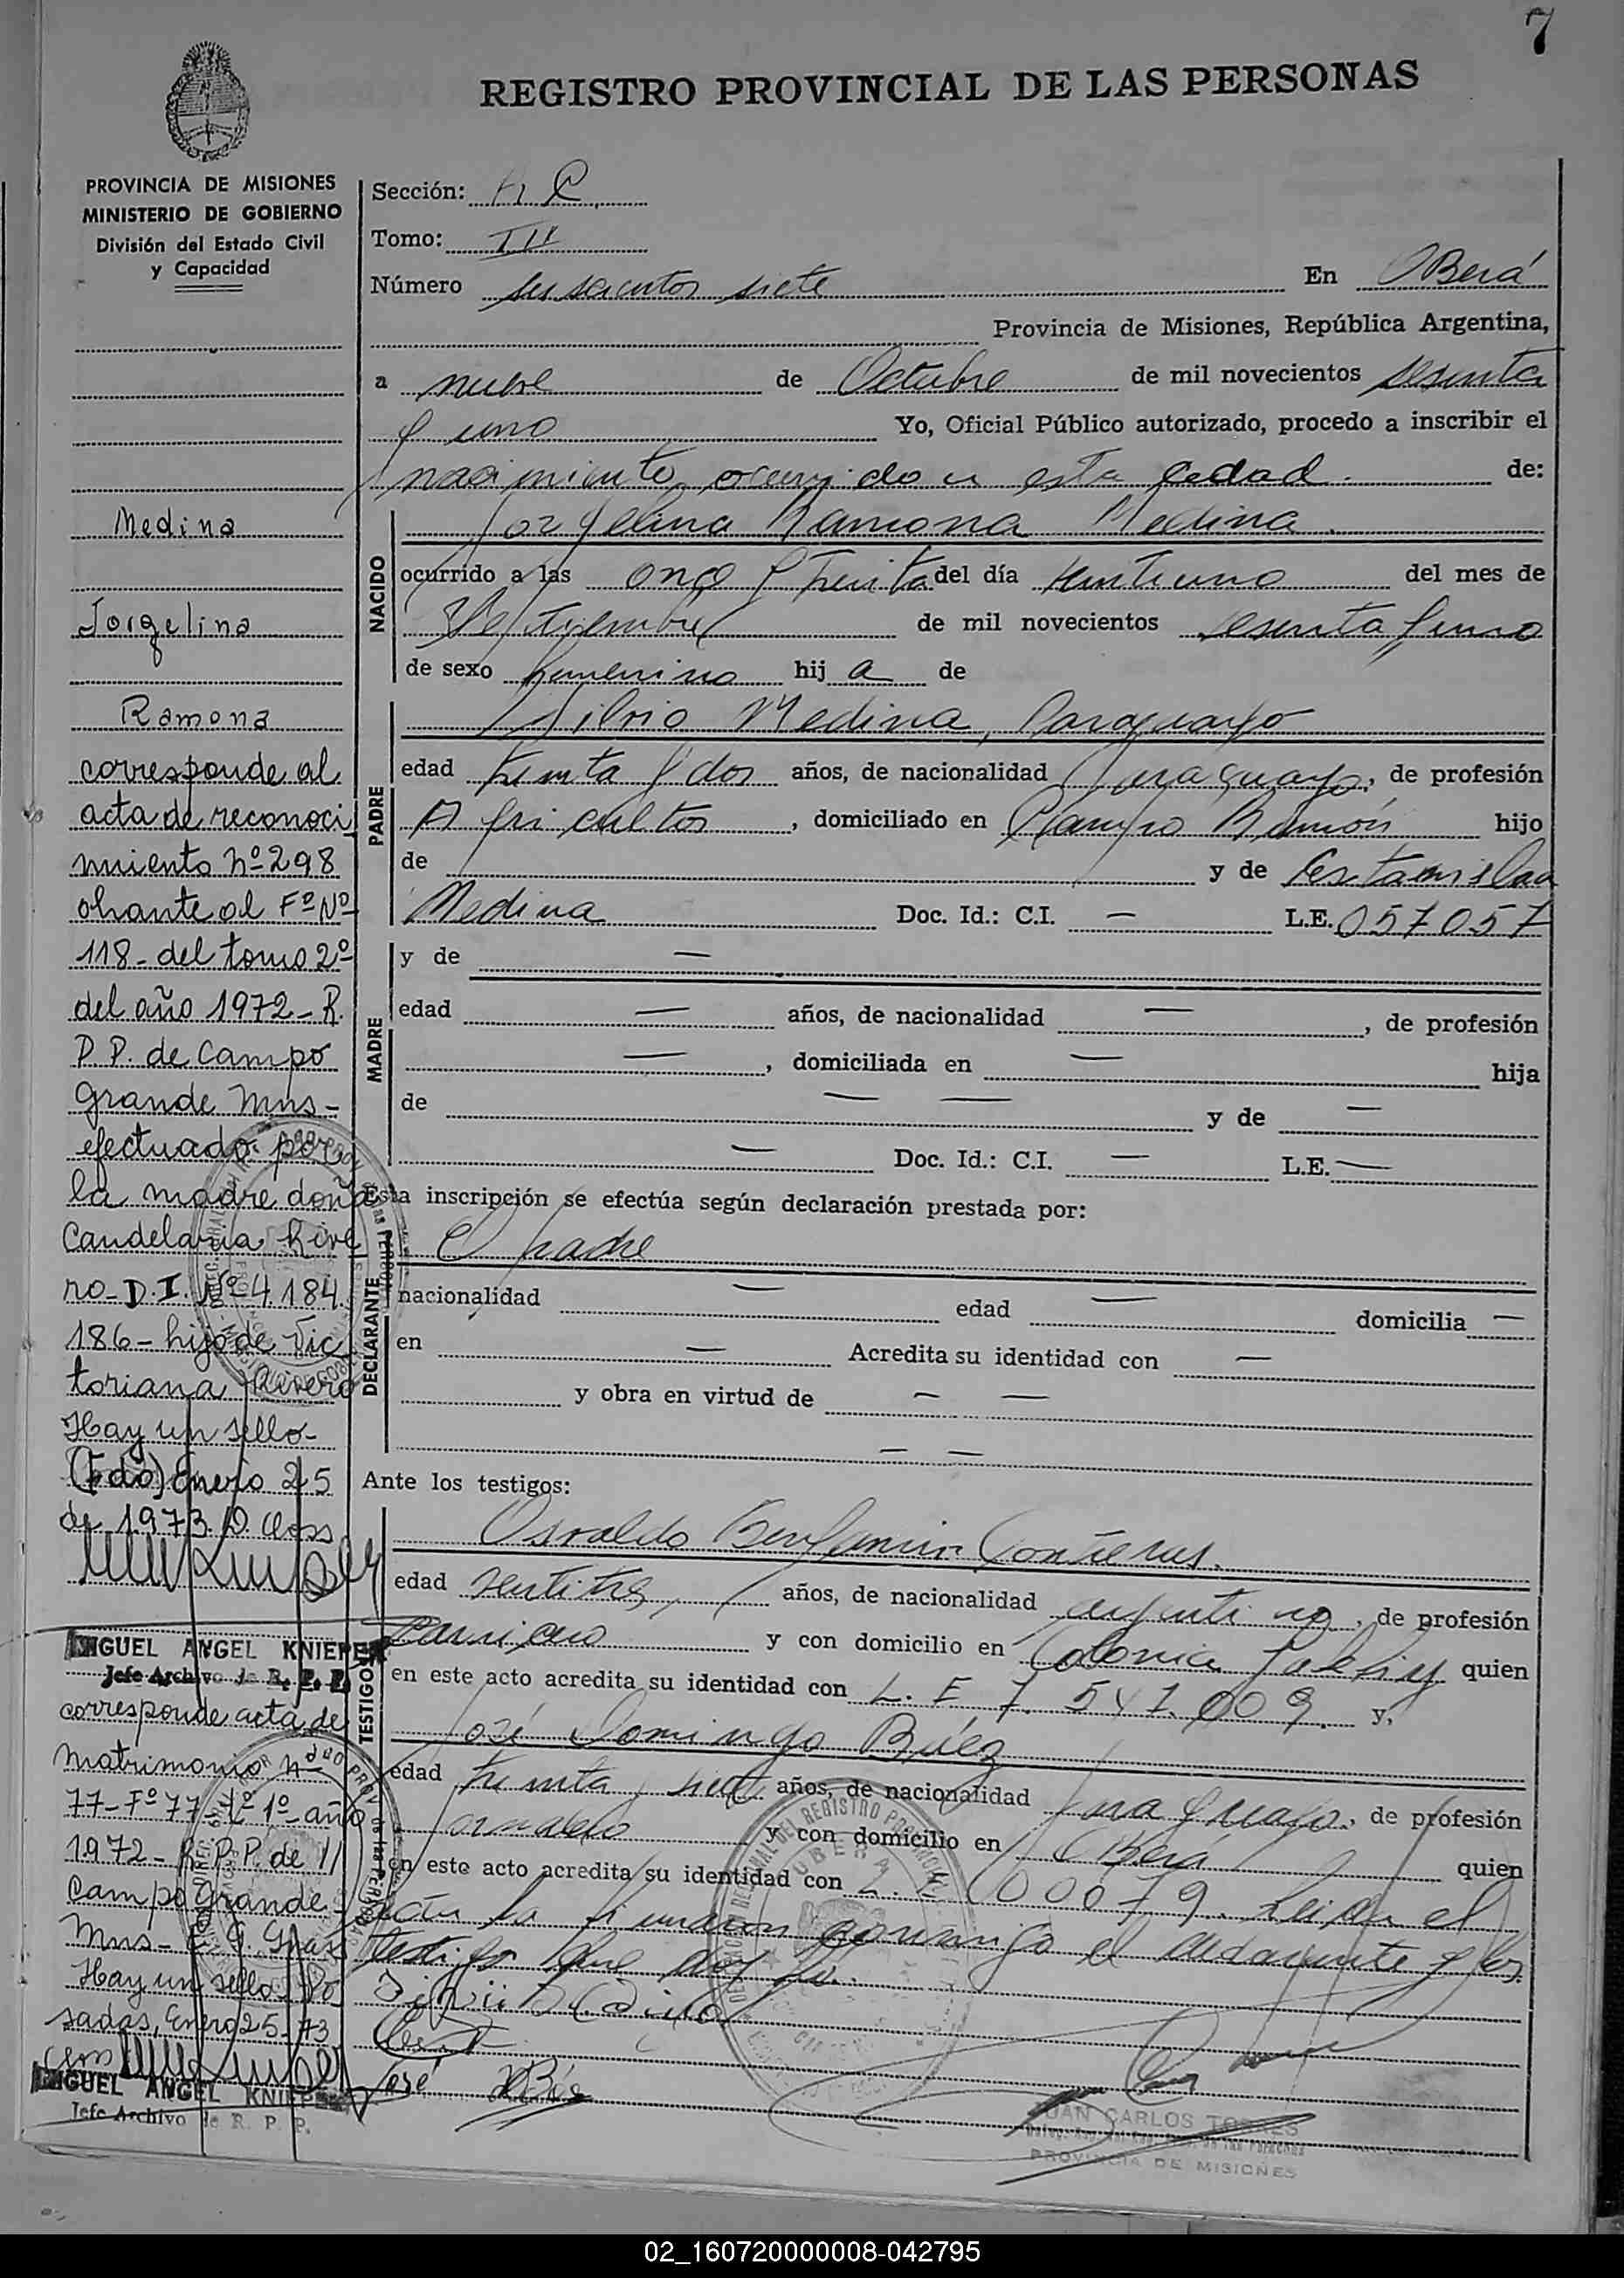 7
REGISTRO PROVINCIAL DE LAS PERSONAS
PROVINCIA DE MISIONES
MINISTERIO DE GOBIERNO
División del Estado Civil
y Capacidad
Medina
Jorgelina
Ramona
corresponde al
acta de reconoci
miento nº 298
obrante al Fº Nº
118- del tomo 2º
del año 1972- R.
P. P. de Campo
Grande Mns-
efectuado por
la madre doña
Candelaria Rive
ro- D.I. Nº 4.184.
186- hijo de Vic
toriana Rivero
Hay un sello-
(Fdo) Enero 25
de 1973. D. Closs
MIGUEL ANGEL KNIEPER
Jefe Archivo de R. P. P.
corresponde acta de
matrimonio nº
77- Fº 77- tº 1º- año
1972- R. P. P. de
Campo Grande-
Mns-
Hay un sello Po
sadas, Enero 25-73
Closs
MIGUEL ANGEL KNIEPER
Jefe Archivo de R. P. P.
Sección:
Tomo: III
Número seiscientos siete En Oberá
Provincia de Misiones, República Argentina,
a nueve de Octubre de mil novecientos sesenta
y uno Yo, Oficial Público autorizado, procedo a inscribir el
nacimiento ocurrido en esta de:
NACIDO
Jorgelina Ramona Medina
ocurrido a las once y treinta del día veintiuno del mes de
Septiembre de mil novecientos sesenta y uno
de sexo femenino hij a de
PADRE
Silvio Medina, Paraguayo
edad treinta y dos años, de nacionalidad Paraguayo, de profesión
Agricultor, domiciliado en Campo Ramón hijo
de y de
Medina Doc. Id.: C.I. — L.E. 057057
MADRE
y de —
edad — años, de nacionalidad —, de profesión
—, domiciliada en — hija
de — — y de —
— Doc. Id.: C.I. — L.E. —
Esta inscripción se efectúa según declaración prestada por:
DECLARANTE
El padre
nacionalidad — edad — domicilia —
en — Acredita su identidad con —
y obra en virtud de — —
— —
Ante los testigos:
TESTIGOS
Osvaldo Benjamin Contreras.
edad veintitres, años, de nacionalidad argentino, de profesión
y con domicilio en Colonia quien
en este acto acredita su identidad con L. E 7.541.009. y,
José Domingo Báez
edad treinta y siete años, de nacionalidad Paraguayo, de profesión
Jornalero y con domicilio en Oberá quien
en este acto acredita su identidad con 000079. Leida el
acta la firmaron conmigo el declarante y los
testigos que doy fe.
José Báez
JUAN CARLOS TORRES
PROVINCIA DE MISIONES
02_160720000008-042795